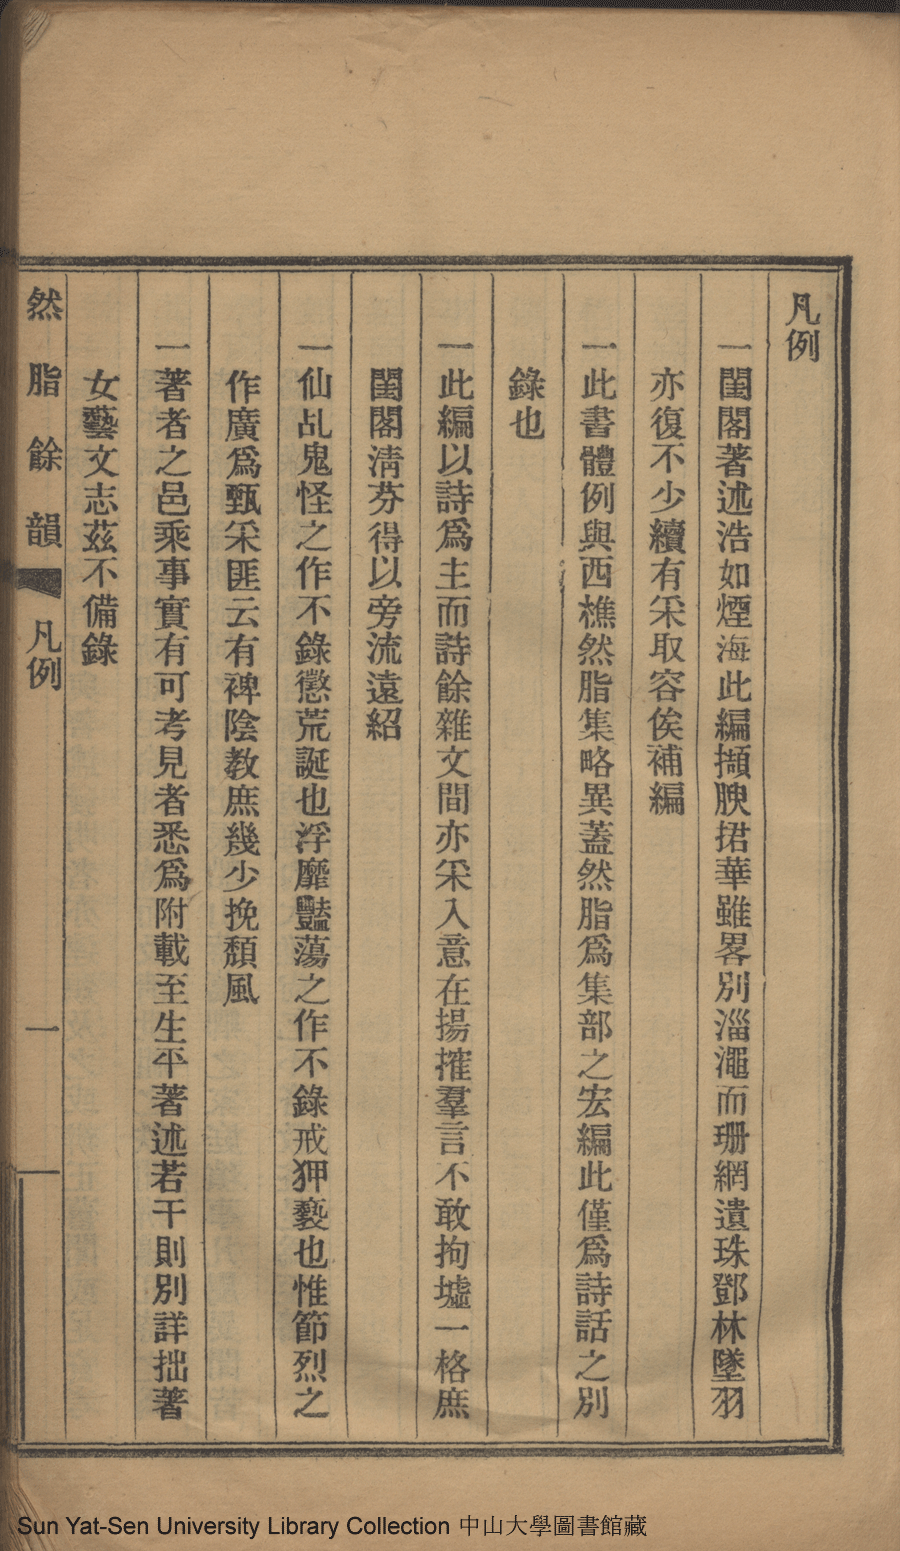 凡例
一閨閣著述浩如煙海此編擷腴捃華雖畧別淄澠而珊網遺珠鄧林墜羽
亦復不少續有采取容俟補編
一此書體例與西樵然脂集略異蓋然脂爲集部之宏編此僅爲詩話之別
錄也
一此編以詩爲主而詩餘雜文間亦采入意在揚搉羣言不敢拘墟一格庶
閨閣淸芬得以旁流遠紹
一仙乩鬼怪之作不錄懲荒誕也浮靡豔蕩之作不錄戒狎褻也惟節烈之
作廣爲甄采匪云有裨陰敎庶幾少挽頹風
一著者之邑乘事實有可考見者悉爲附載至生平著述若干則別詳拙著
女藝文志茲不備錄
然脂餘韻 凡例 一
Sun Yat-Sen University Library Collection 中山大學圖書館藏